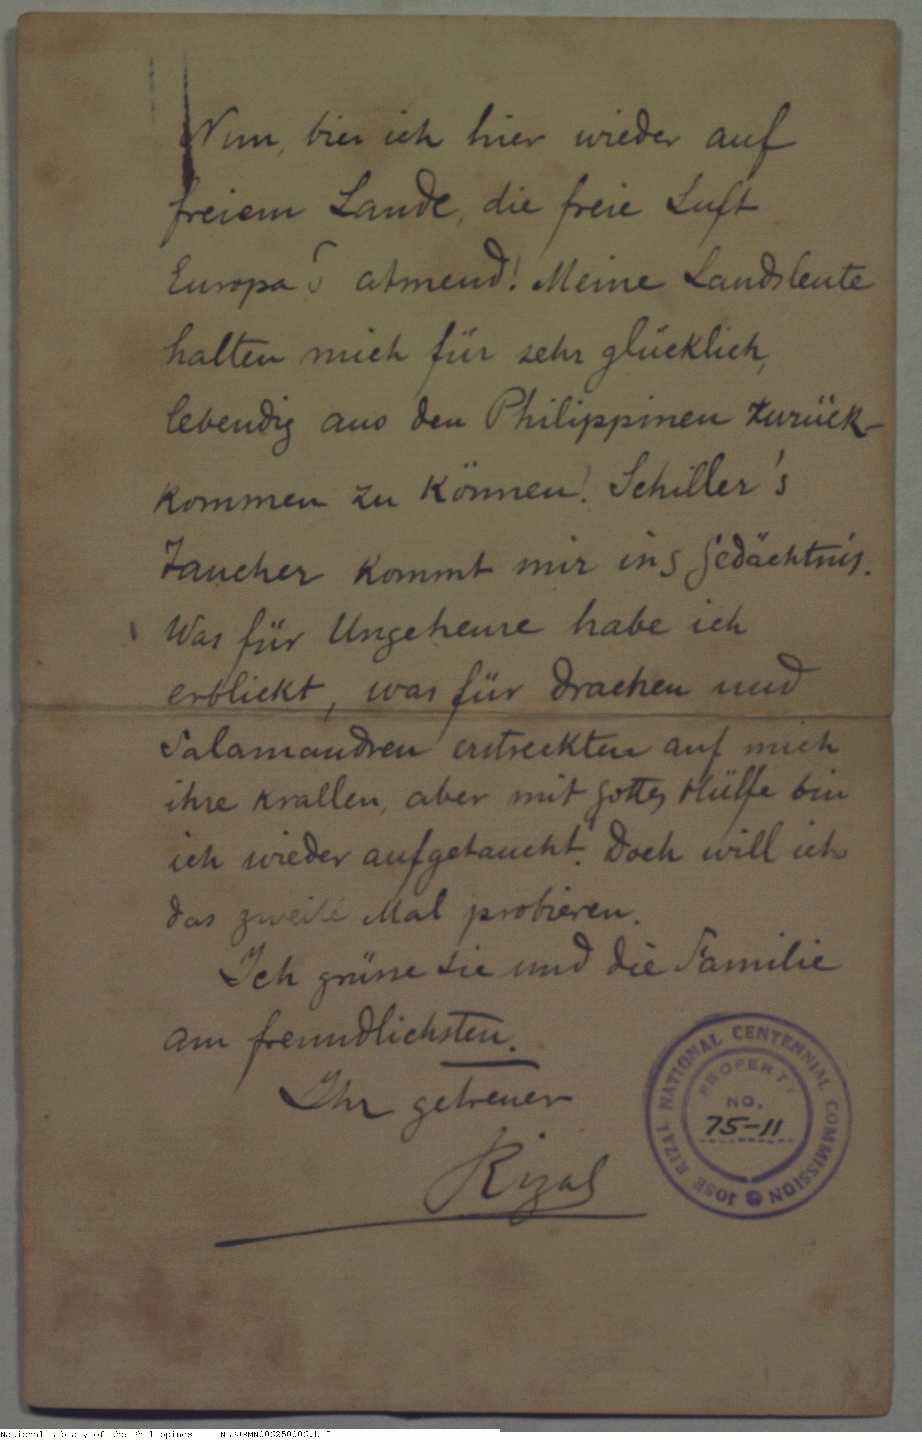 Nun, bin ich hier wieder auf
freiem Lande, die freie Luft
Europa's atmend! Meine Landsleute
halten mich für sehr glücklich,
lebendig aus den Philippinen zurück-
kommen zu können! Schiller's
Taucher kommt mir ins Gedächtnis.
Was für Ungeheure habe ich
erblickt, was für Drachen und
Salamandren erstreckten auf mich
ihre Krallen, aber mit Gottes Hülfe bin
ich wieder aufgetaucht! Doch will ich
das zweite Mal probieren.
Ich grüsse Sie und die Familie
am freundlichsten.
Ihr getreuer
Rizal
JOSE RIZAL NATIONAL CENTENNIAL COMMISSION
PROPERTY
NO.
75-11
National Library of the Philippines